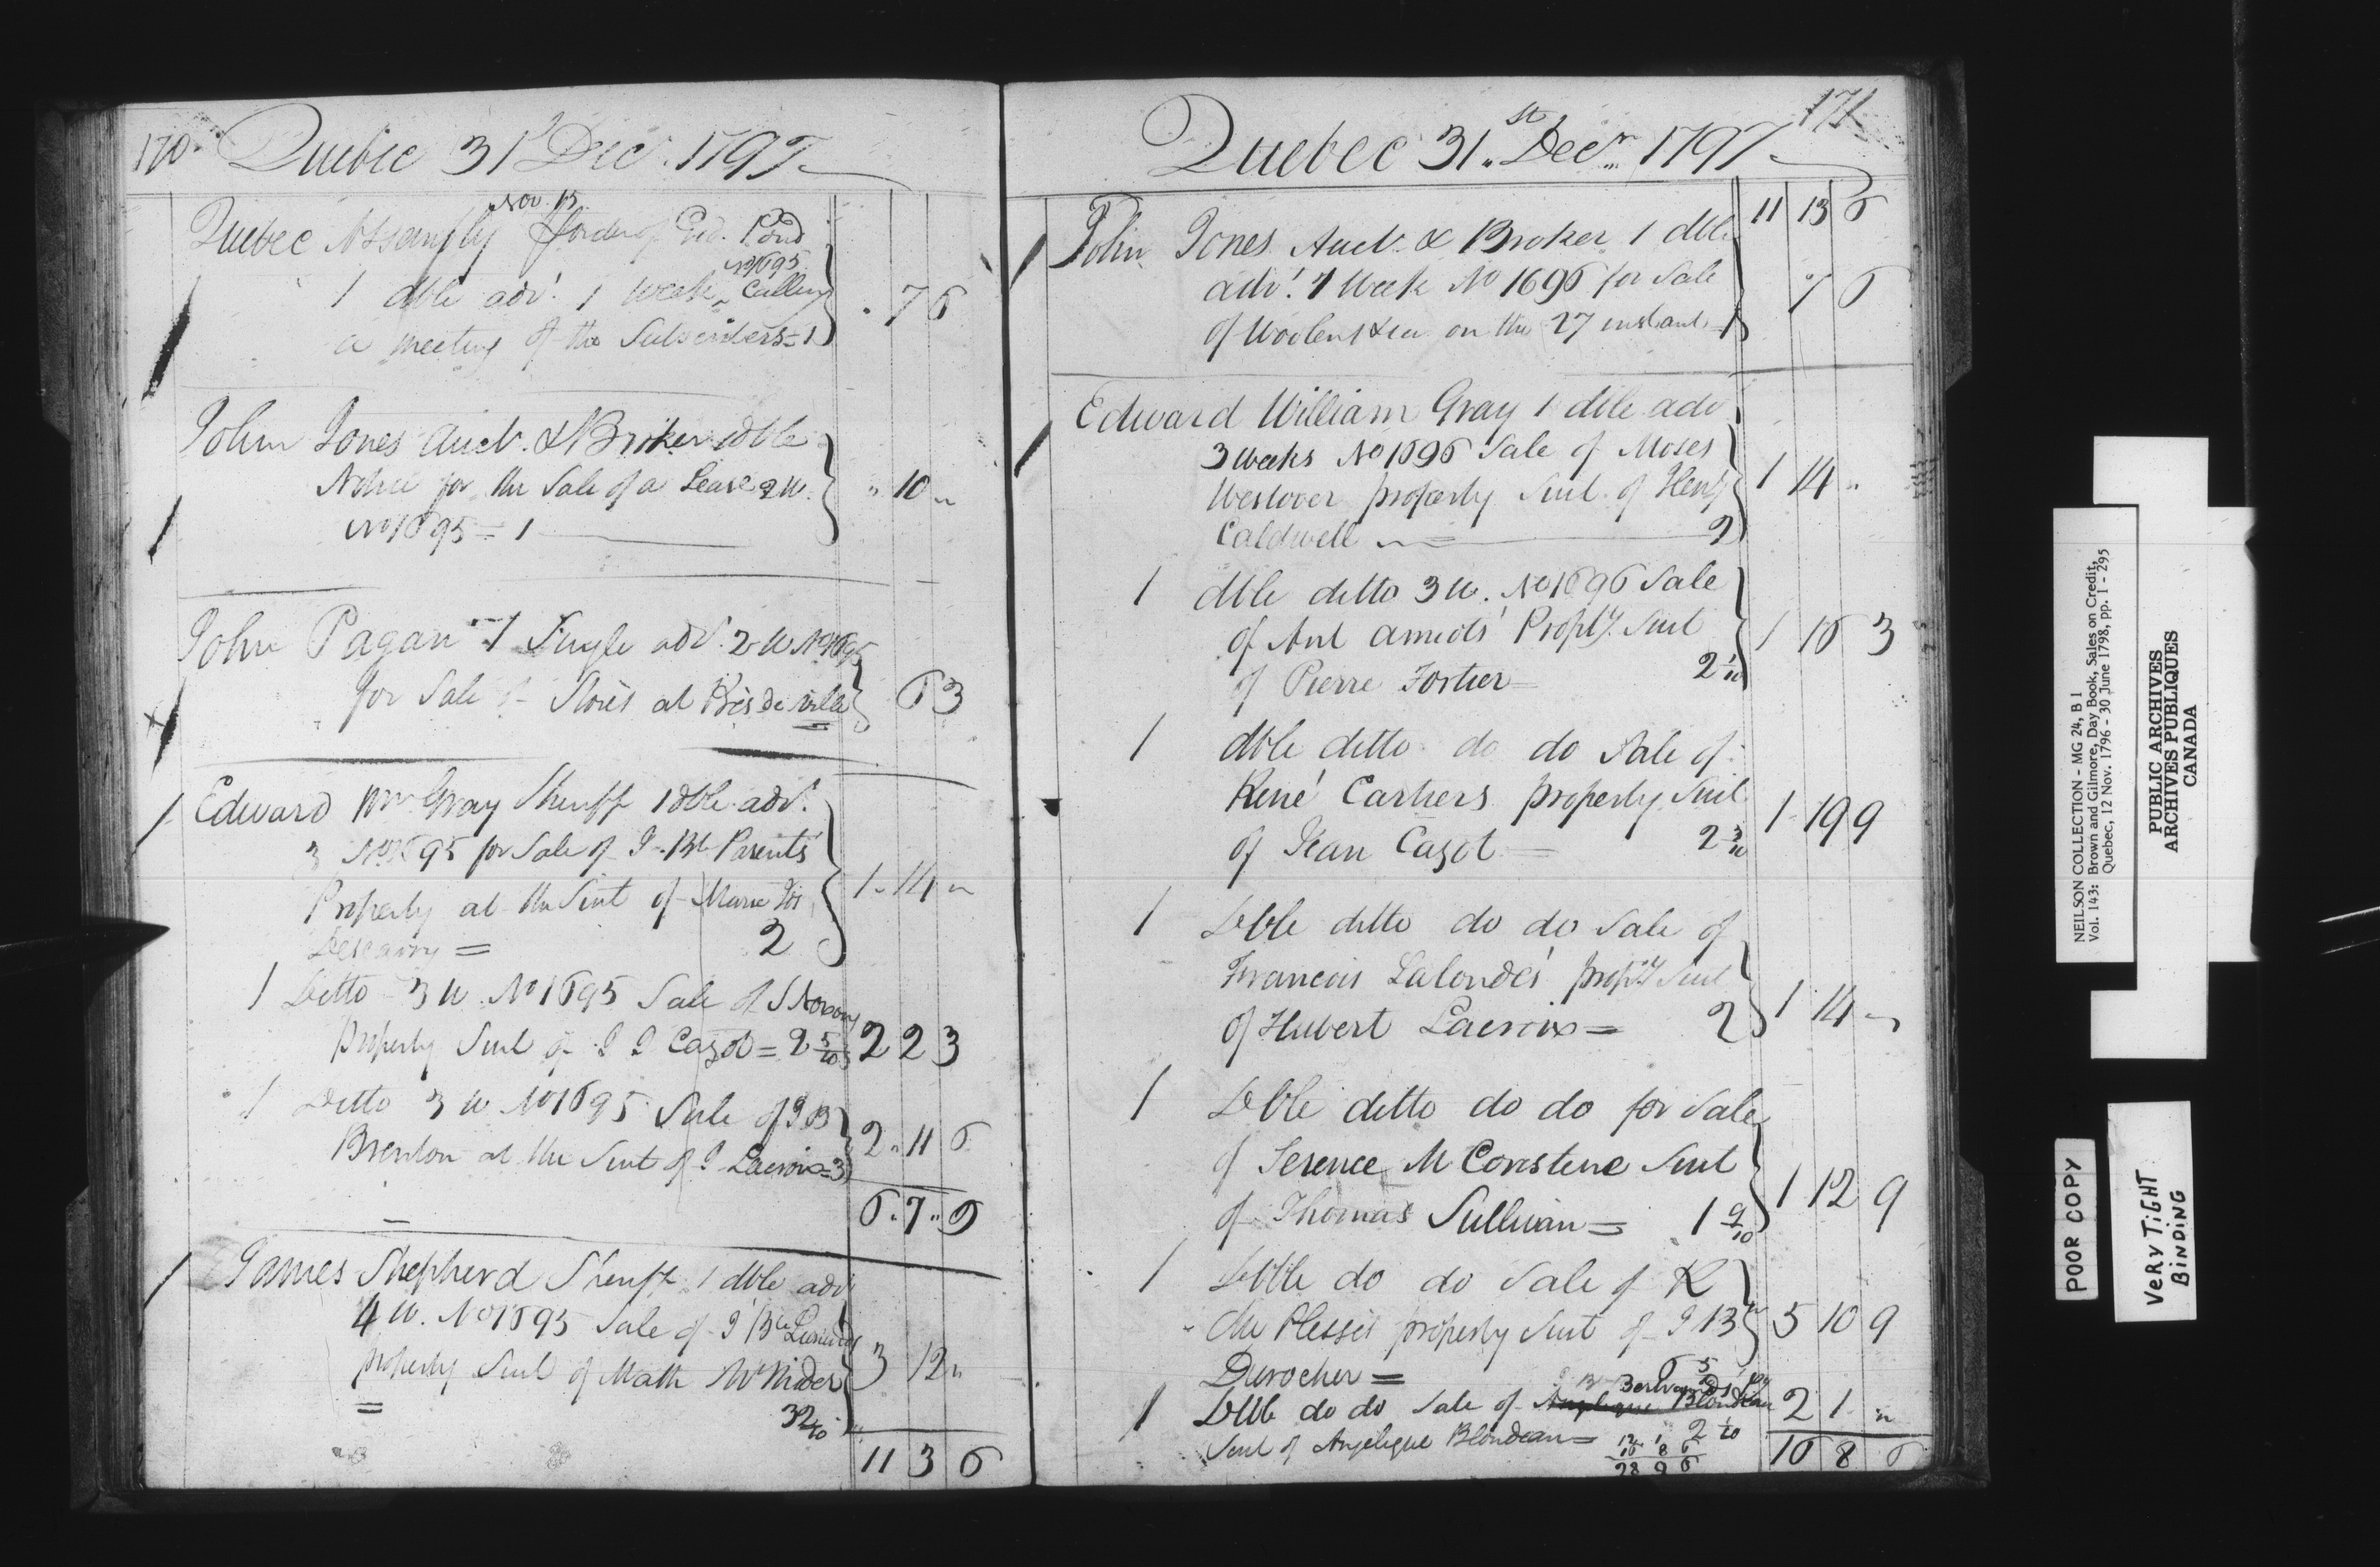 170 Quebec 31st Decr. 1797
Nov. 13
Quebec Assembly order of Geo. Pond
No 1695
1 dble advt. 1 week, Calling
a meeting of the Subscribers = 1
" 7 6
John Jones Auct. & Broker 1 dble
Notice for the Sale of a Lease 2 W.
No 1695 = 1
" 10 "
John Pagan 1 Single advt. 2 W No 1695
for Sale of Stores at Près de ville
6 3
1 Edward Wm Gray Sheriff 1 dble advt.
3 No 1695 for Sale of J. Bte Parents
Property at the Suit of Marie
= 2
1 " 14 "
1 Ditto 3 W. No 1695 Sale of
property Suit of J J Cazot = 2 5/10
2 2 3
1 Ditto 3 W No 1695 Sale of J B
Brenton at the Suit of J Lacroix = 3
2 " 11 6
6 " 7 " 9
James Shepherd Sheriff 1 dble advt
4 W. No 1695 Sale of J Bte
property Suit of Math McNider
=
3 2/10
3 12 "
11 3 6
171
Quebec 31st Decr 1797
11 13 6
John Jones Auct. & Broker 1 dble
advt. 1 Week No 1696 for Sale
of Woolens &ca on the 27 instant 1
7 6
Edward William Gray 1 dble adv
3 weeks No 1696 Sale of Moses
Westover property Suit of Henry
Caldwell = 2
1 14 "
1 dble ditto 3 W. No 1696 Sale
of Ant Amiots' Propty. Suit
of Pierre Fortier = 2 1/10
1 16 3
1 dble ditto do do Sale of
René Cartiers property Suit
of Jean Cazot = 2 3/10
1 19 9
1 Dble ditto do do Sale of
Francois Lalondes' propty Suit
of Hubert Lacroix = 2
1 14 "
1 Dble ditto do do for Sale
of Terence M Suit
of Thomas Sullivan = 1 9/10
1 12 9
1 Dble do do Sale of R
du Plessis property Suit of J Bte
Durocher = 6 5/10
5 10 9
J B Bertrands ppy
1 Dble do do Sale of Angelique Blondeau
Suit of Angelique Blondeau = 2 4/10
2 1 "
12 1
16 8 6
28 9 6
16 8 6
NEILSON COLLECTION - MG 24, B 1
Vol. 143: Brown and Gilmore, Day Book, Sales on Credit,
Quebec, 12 Nov. 1796 - 30 June 1798, pp. 1 - 295
PUBLIC ARCHIVES
ARCHIVES PUBLIQUES
CANADA
POOR COPY
VERY TIGHT
BINDING